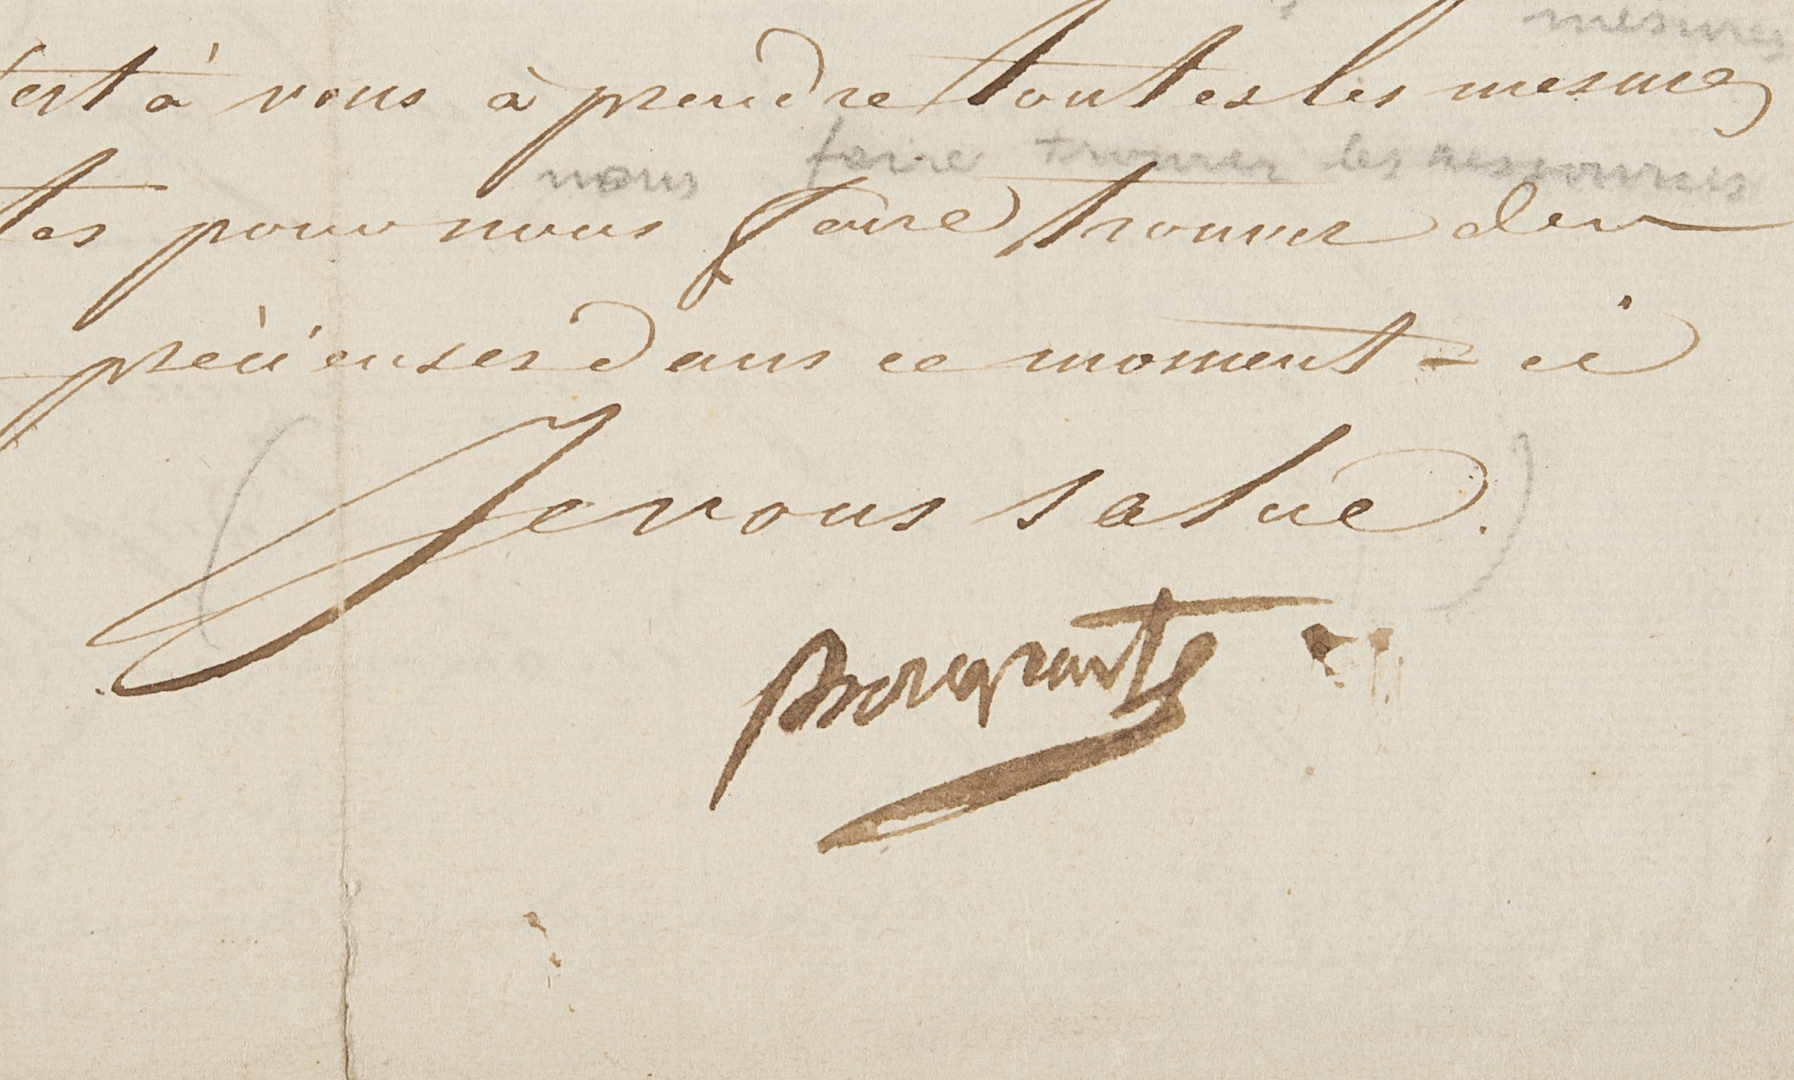 mesures
c'est à vous à prendre toutes les mesures
nous faire trouver les ressources
tes pour nous faire trouver des
précieuses dans ce moment-ci
Je vous salue.
Bonaparte